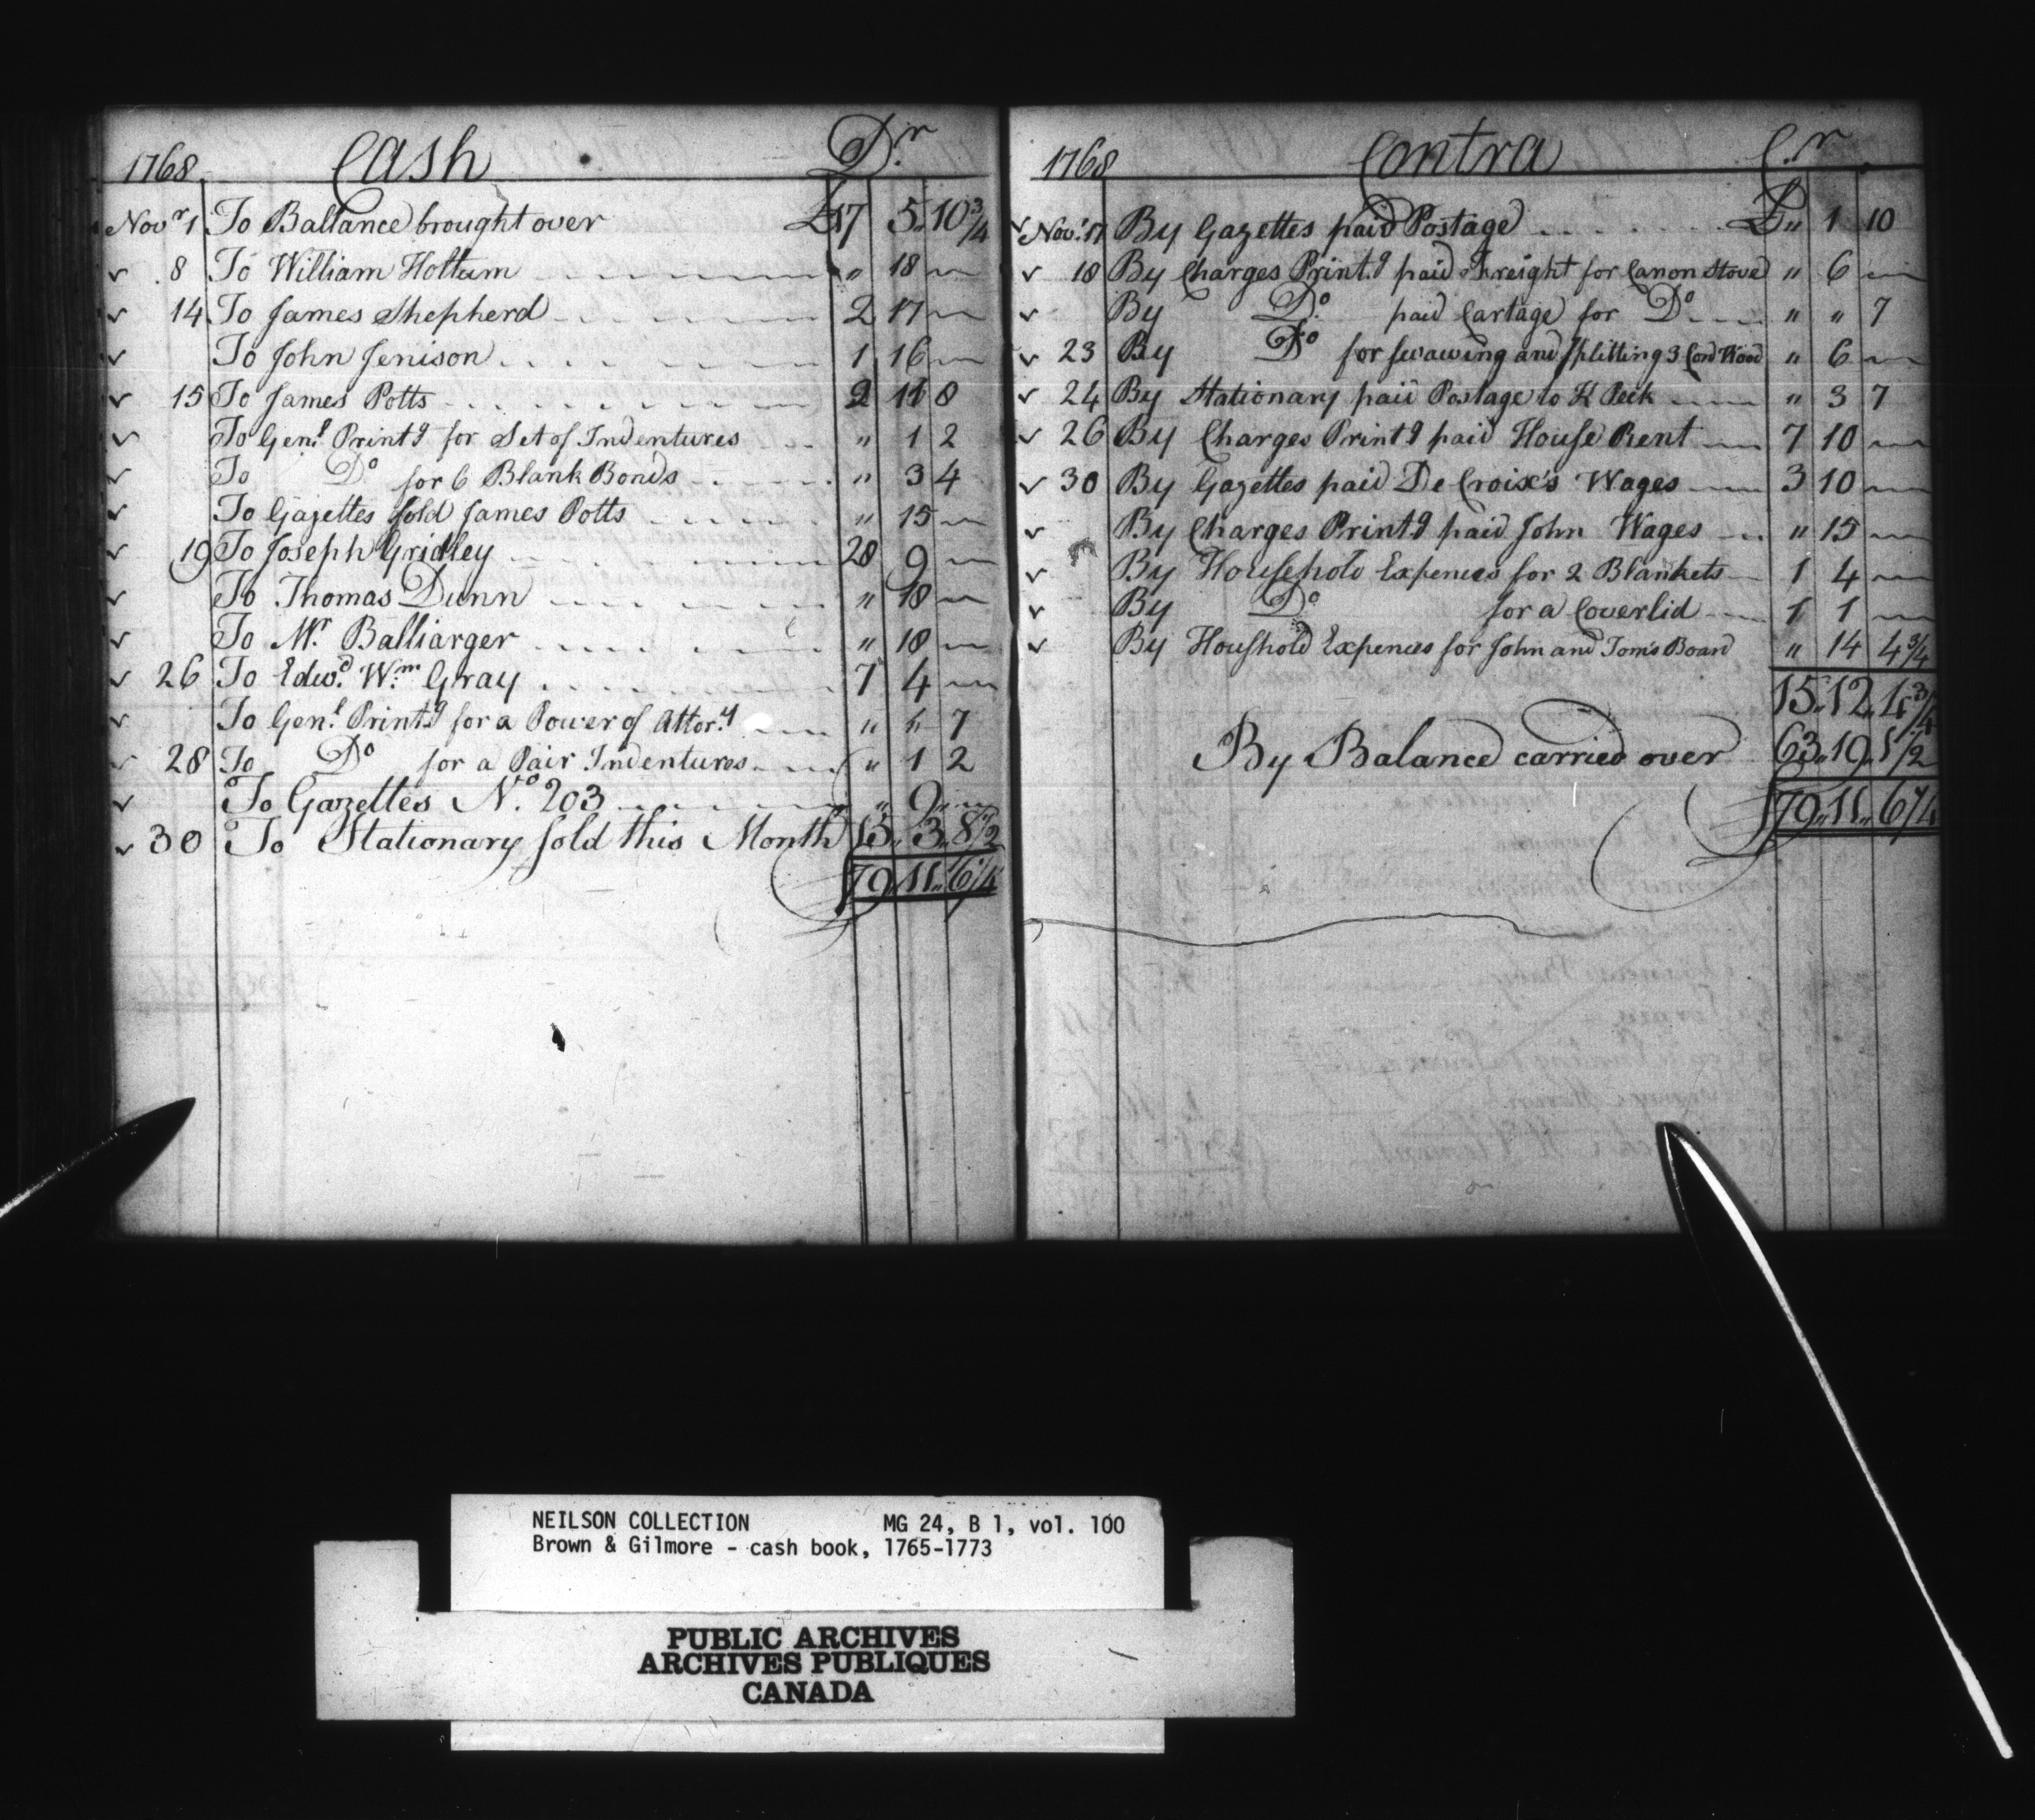 1768 Cash Dr
Novr 1 To Ballance brought over £17 5 10 3/4
8 To William Holtum " 18 —
14 To James Shepherd 2 17 —
To John Jenison 1 16 —
15 To James Potts 2 11 8
To Genl Printg for Set of Indentures " 1 2
To Do for 6 Blank Bonds " 3 4
To Gazettes sold James Potts " 15 —
19 To Joseph Gridley 28 9 —
To Thomas Dunn " 18 —
To Mr Balliarger " 18 —
26 To Edwd Wm Gray 7 4 —
To Genl Printg for a Power of Attory " " 7
28 To Do for a Pair Indentures " 1 2
To Gazettes No 203 " 9 —
30 To Stationary sold this Month 15 3 8 1/2
79 11 6 1/4
1768 Contra Cr
Novr 17 By Gazettes paid Postage £ " 1 10
18 By Charges Printg paid Freight for Canon Stove " 6 —
By Do paid Cartage for Do " " 7
23 By Do for sawing and splitting 3 Cord Wood " 6 —
24 By Stationary paid Postage to K Peck " 3 7
26 By Charges Printg paid House Rent 7 10 —
30 By Gazettes paid De Croix's Wages 3 10 —
By Charges Printg paid John Wages " 15 —
By Household Expences for 2 Blankets 1 4 —
By Do for a Coverlid 1 1 —
By Houshold Expences for John and Tom's Board " 14 4 3/4
15 12 4 3/4
By Balance carried over 63 19 1 1/2
79 11 6 1/4
NEILSON COLLECTION MG 24, B 1, vol. 100
Brown & Gilmore - cash book, 1765-1773
PUBLIC ARCHIVES
ARCHIVES PUBLIQUES
CANADA